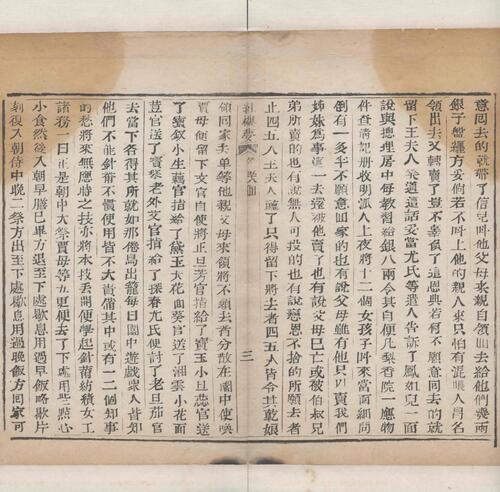 意回去的就帶了信兒叫他父母來親自領回去給他們幾兩
銀子盤纏方妥倘若不叫上他的親人來只怕有混賬人冒名
領出去又轉賣了豈不辜負了這恩典若有不願意回去的就
留下王夫人笑道這話妥當尤氏等遣人告訴了鳳姐兒一面
說與總理房中每教習給銀八兩令其自便凡梨香院一應物
件查清記冊收明派人上夜將十二個女孩子叫來當面細問
倒有一多半不願意回家的也有說父母雖有他只以賣我們
姊妹為事這一去還被他賣了也有說父母已亡或被伯叔兄
弟所賣的也有說無人可投的也有說戀恩不捨的所願去者
止四五人王夫人聽了只得留下將去者四五人皆令其乾娘
紅樓夢 三
領回家去单等他親父母來領將不願去者分散在園中使喚
賈母便留下文官自使將正旦芳官指給了寶玉小旦蕊官送
了寶釵小生藕官指給了黛玉大花面葵官送了湘雲小花面
荳官送了寶琴老外艾官指給了探春尤氏便討了老旦茄官
去當下各得其所就如那倦鳥出籠每日園中遊戲眾人皆知
他們不能針黹不慣使用皆不大責備其中或有一二個知事
的愁將來無應時之技亦將本技丟開便學起針黹紡積女工
諸務一日正是朝中大祭賈母等五更便去了下處用些點心
小食然後入朝早膳已畢方退至下處歇息用過早飯略歇片
刻復入朝侍中晚二祭方出至下處歇息用過晚飯方回家可